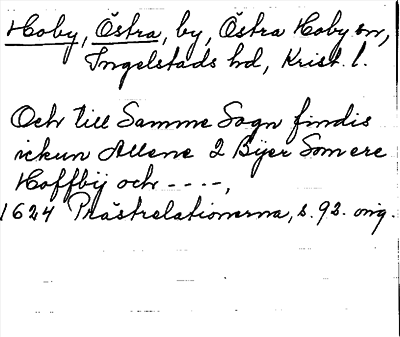 Hoby, Östra, by, Östra Hoby sn,
Ingelstads hd, Krist. l.
Och till Samme Sogn findis
ickun Allene 2 Byer Som ere
Hoffbÿ och - - - -,
1624 Prästrelationerna, s. 93. orig.